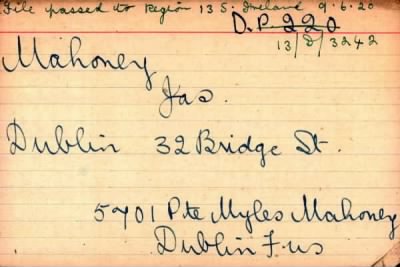 File passed to Region 13 S. Ireland 9.6.20
D.P. 220
13/D/3242
Mahoney
Jas.
Dublin 32 Bridge St.
5701 Pte Myles Mahoney
Dublin Fus